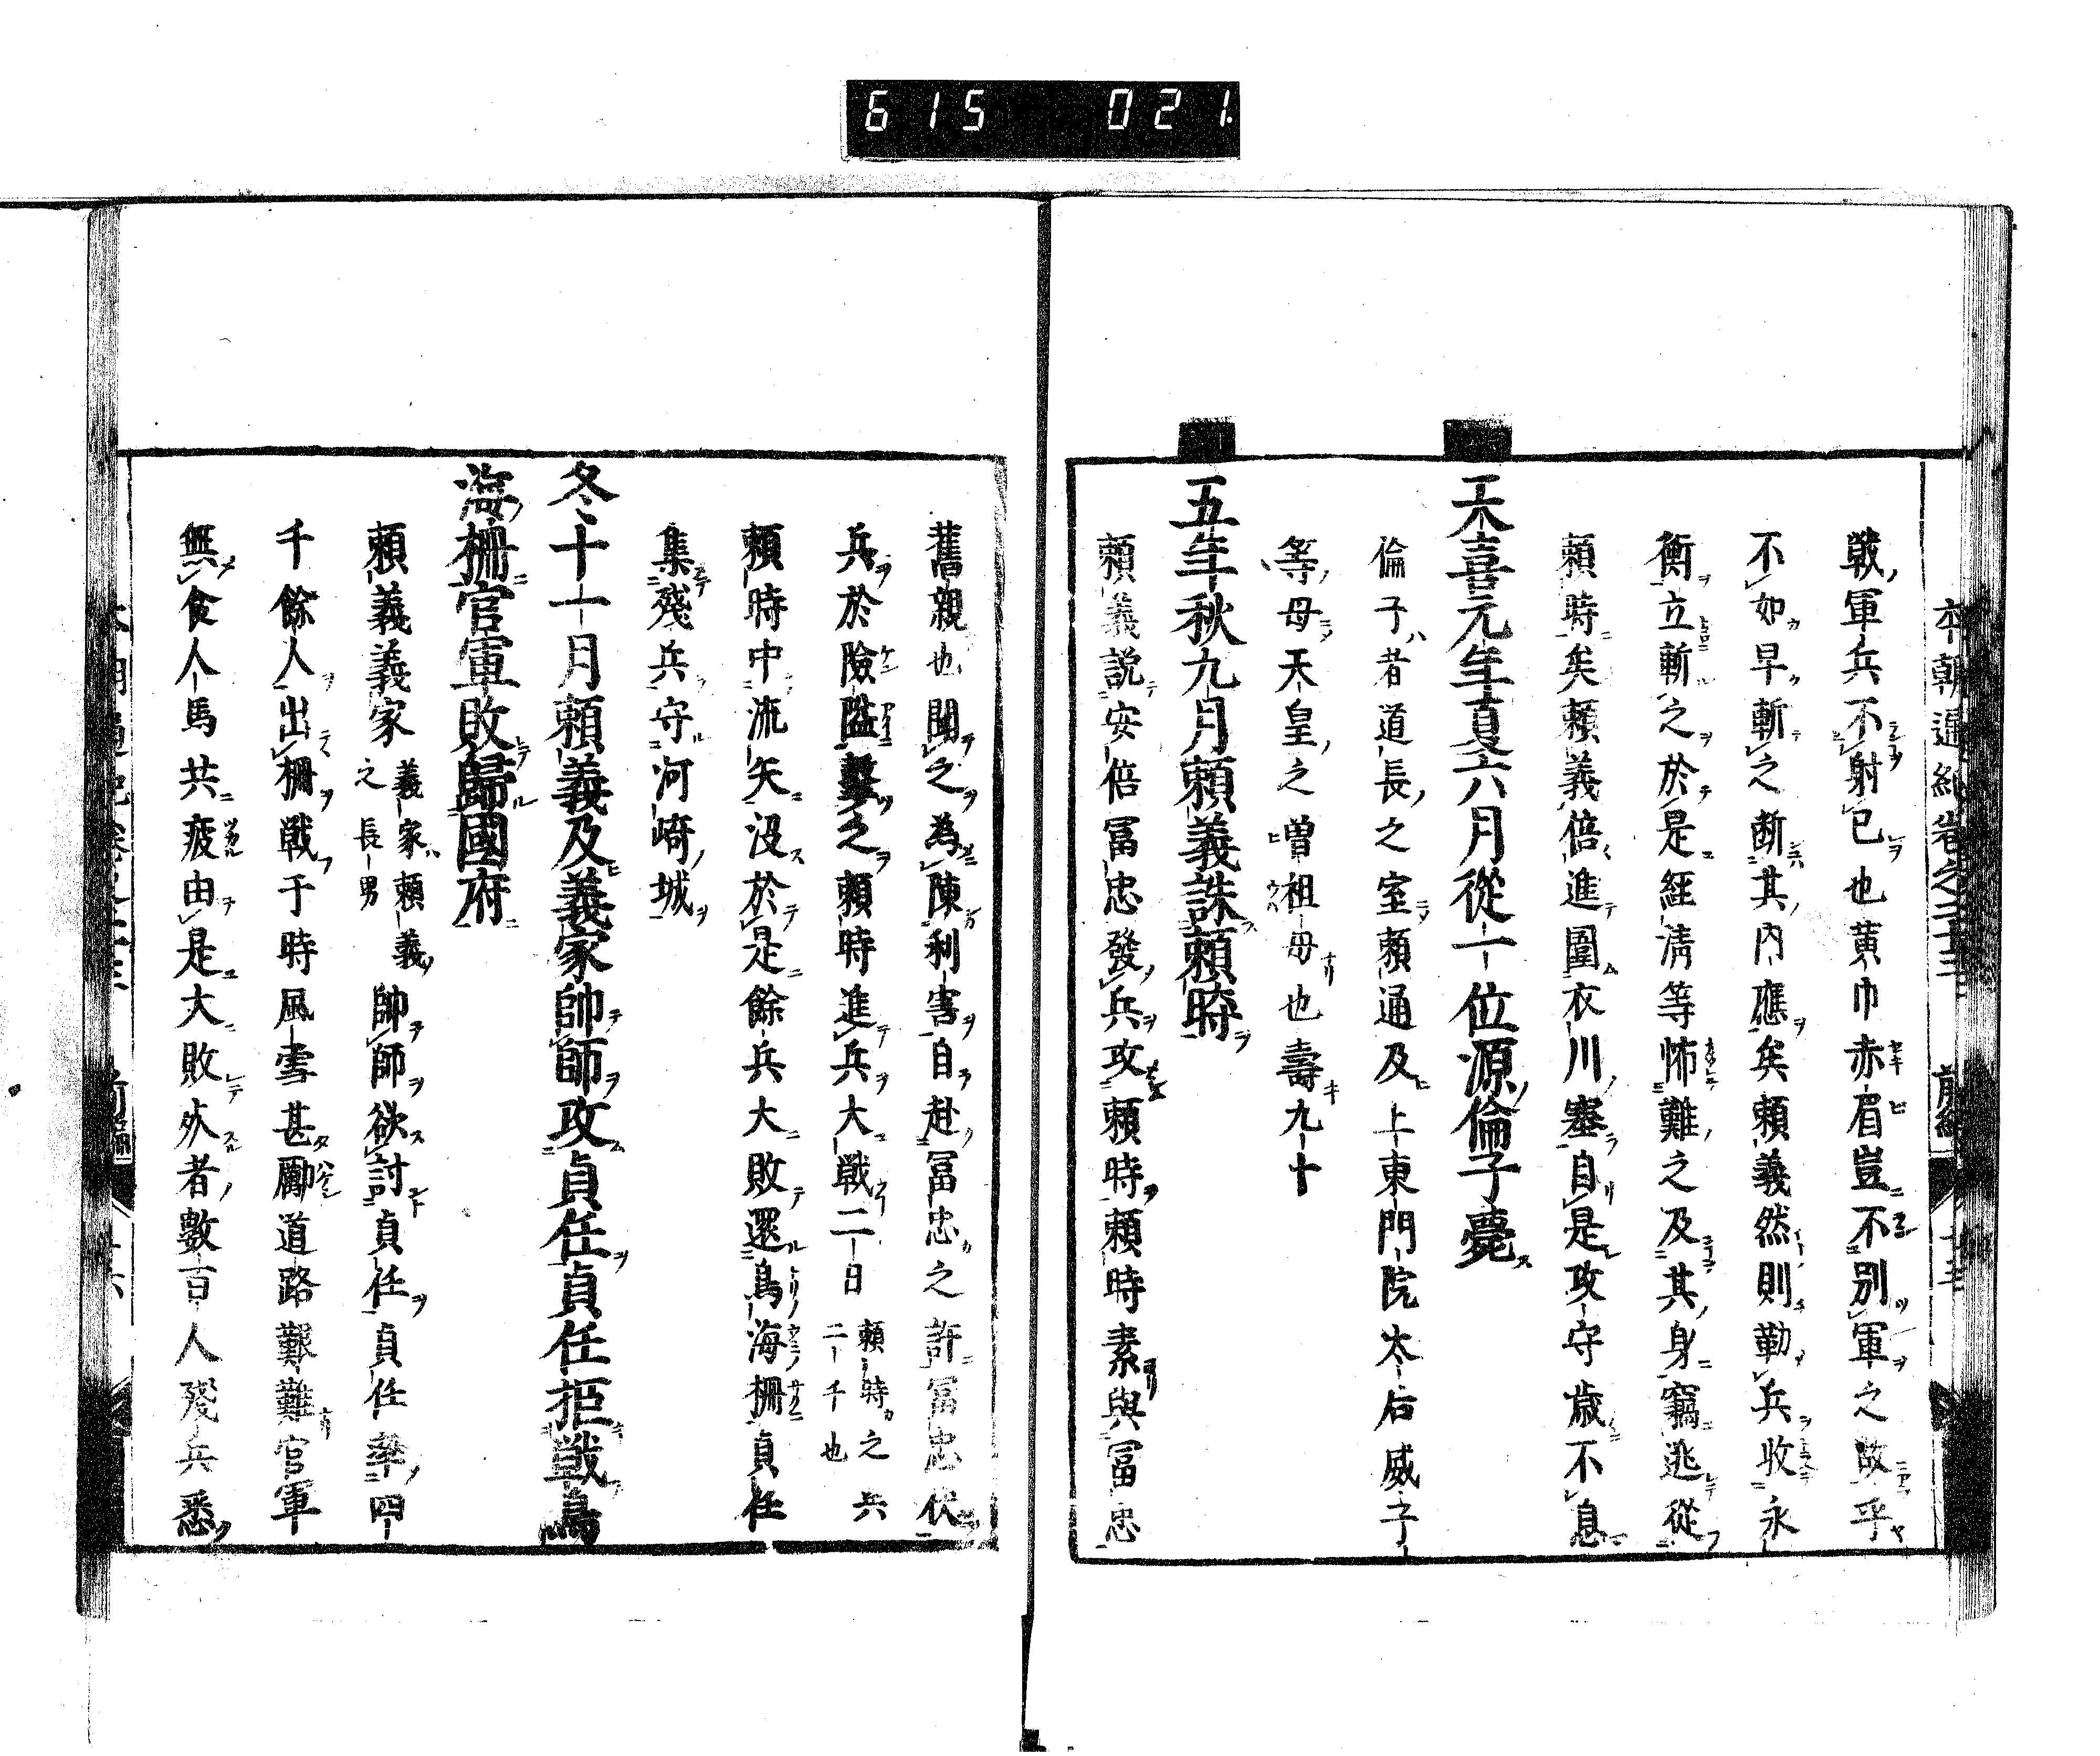 615 021.
本朝通紀卷之二十三 前編
戰軍兵不射已也黃巾赤眉豈不別軍之故乎
不如早斬之断其內應矣賴義然則勒兵收永
衡立斬之於是經淸等怖難之及其身竊逃從
賴時矣賴義倍進圍衣川塞自是攻守歲不息
天喜元年夏六月從一位源倫子薨
倫子者道長之室賴通及上東門院太后威子
等母天皇之曽祖母也壽九十
五年秋九月賴義誅賴時
賴義説安倍冨忠發兵攻賴時賴時素與冨忠
舊親也聞之為陳利害自赴冨忠之許冨忠伏
兵於險隘擊之賴時進兵大戰二日賴時之兵二千也
賴時中流矢没於是餘兵大敗還鳥海柵貞任
集殘兵守河崎城
冬十一月賴義及義家帥師攻貞任貞任拒戰鳥
海柵官軍敗歸國府
賴義義家義家賴義之長男帥師欲討貞任貞任率四
千餘人出柵戰于時風雪甚勵道路艱難官軍
無食人馬共疲由是大敗死者數百人殘兵悉